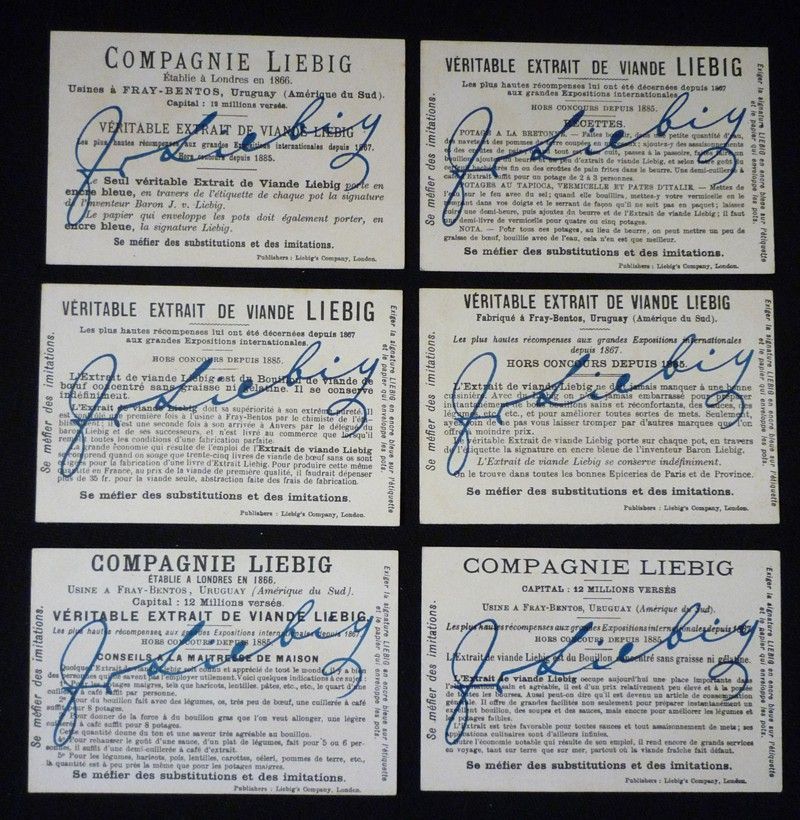 COMPAGNIE LIEBIG
Établie à Londres en 1866.
Usines à FRAY-BENTOS, Uruguay (Amérique du Sud).
Capital : 12 millions versés.
VÉRITABLE EXTRAIT DE VIANDE LIEBIG
Les plus hautes récompenses aux grandes Expositions internationales depuis 1867.
Hors concours depuis 1885.
Le Seul véritable Extrait de Viande Liebig porte en
encre bleue, en travers de l'étiquette de chaque pot la signature
de l'inventeur Baron J. v. Liebig.
Le papier qui enveloppe les pots doit également porter, en
encre bleue, la signature Liebig.
Se méfier des substitutions et des imitations.
Publishers : Liebig's Company, London.
J v Liebig
VÉRITABLE EXTRAIT DE VIANDE LIEBIG
Les plus hautes récompenses lui ont été décernées depuis 1867
aux grandes Expositions internationales
HORS CONCOURS DEPUIS 1885.
POTAGE A LA BRETONNE.
POTAGES AU TAPIOCA, VERMICELLE ET PATES D'ITALIE. — Mettez de
l'eau sur le feu avec du sel; quand elle bouillira, mettez-y votre vermicelle en le
rompant dans vos doigts et le serrant de façon qu'il ne soit pas en paquet; laissez
cuire une demi-heure, puis ajoutez du beurre et de l'Extrait de viande Liebig; il faut
une demi-livre de vermicelle pour quatre ou cinq potages.
NOTA. — Pour tous ces potages, au lieu de beurre, on peut mettre un peu de
graisse de bœuf, bouillie avec de l'eau, cela n'en est que meilleur.
Se méfier des substitutions et des imitations.
Publishers : Liebig's Company, London.
Se méfier des imitations.
Exiger la signature LIEBIG en encre bleue sur l'étiquette
et le papier qui enveloppe les pots.
J v Liebig
VÉRITABLE EXTRAIT DE VIANDE LIEBIG
Les plus hautes récompenses lui ont été décernées depuis 1867
aux grandes Expositions internationales.
HORS CONCOURS DEPUIS 1885.
L'Extrait de viande Liebig est du Bouillon de viande de
bœuf concentré sans graisse ni gélatine. Il se conserve
indéfiniment.
L'Extrait de viande Liebig doit sa supériorité à son extrême pureté. Il
est fabriqué en première fois à l'usine à Fray-Bentos par le chimiste de l'établissement;
il l'est une seconde fois à son arrivée à Anvers par le délégué du
baron Liebig et de ses successeurs, et n'est livré au commerce que lorsqu'il
remplit toutes les conditions d'une fabrication parfaite.
La grande économie qui résulte de l'emploi de l'Extrait de viande Liebig
se comprend quand on songe que trente-cinq livres de viande de bœuf sans os sont
employées pour la fabrication d'une livre d'Extrait Liebig. Pour produire cette même
quantité en France, au prix de la viande de première qualité, il faudrait dépenser
plus de 35 fr. pour la viande seule, abstraction faite des frais de fabrication.
Se méfier des substitutions et des imitations.
Publishers : Liebig's Company, London.
Se méfier des imitations.
Exiger la signature LIEBIG en encre bleue sur l'étiquette
et le papier qui enveloppe les pots.
J v Liebig
VÉRITABLE EXTRAIT DE VIANDE LIEBIG
Fabriqué à Fray-Bentos, Uruguay (Amérique du Sud).
Les plus hautes récompenses aux grandes Expositions internationales
depuis 1867.
HORS CONCOURS DEPUIS 1885.
L'Extrait de viande Liebig ne doit jamais manquer à une bonne
cuisinière. Avec lui, on n'est jamais embarrassé pour préparer
instantanément de bons bouillons sains et réconfortants, des sauces, des
légumes, etc., et pour améliorer toutes sortes de mets. Seulement,
ayez soin de ne pas vous laisser tromper par d'autres marques que l'on
offre à moindre prix.
Le véritable Extrait de viande Liebig porte sur chaque pot, en travers
de l'étiquette la signature en encre bleue de l'inventeur Baron Liebig.
L'Extrait de viande Liebig se conserve indéfiniment.
On le trouve dans toutes les bonnes Epiceries de Paris et de Province.
Se méfier des substitutions et des imitations.
Publishers : Liebig's Company, London.
Se méfier des imitations.
Exiger la signature LIEBIG en encre bleue sur l'étiquette
et le papier qui enveloppe les pots.
J v Liebig
COMPAGNIE LIEBIG
ÉTABLIE A LONDRES EN 1866.
USINE A FRAY-BENTOS, URUGUAY (Amérique du Sud).
Capital : 12 Millions versés.
VÉRITABLE EXTRAIT DE VIANDE LIEBIG
Les plus hautes récompenses aux grandes Expositions internationales depuis 1867
HORS CONCOURS DEPUIS 1885.
CONSEILS A LA MAITRESSE DE MAISON
Quoique l'Extrait de viande Liebig soit connu et apprécié de tout le monde, il y a bien
des personnes qui ne savent pas l'employer utilement. Voici quelques indications à ce sujet
cuillerée à café suffit par personne.
du bouillon fait avec des légumes, os, très peu de bœuf, une cuillerée à café
suffit pour 8 potages.
Pour donner de la force à du bouillon gras que l'on veut allonger, une légère
cuillerée à café suffit pour 8 potages.
Cette quantité donne du ton et une saveur très agréable au bouillon.
Pour rehausser le goût d'une sauce, d'un plat de légumes, fait pour 5 ou 6 personnes,
il suffit d'une demi-cuillerée à café d'extrait.
5° Pour les légumes, haricots, pois, lentilles, carottes, céleri, pommes de terre, etc.,
la quantité est à peu près la même que pour les potages maigres.
Se méfier des substitutions et des imitations.
Publishers : Liebig's Company, London.
Se méfier des imitations.
Exiger la signature LIEBIG en encre bleue sur l'étiquette
et le papier qui enveloppe les pots.
J v Liebig
COMPAGNIE LIEBIG
CAPITAL : 12 MILLIONS VERSÉS
USINE A FRAY-BENTOS, URUGUAY (Amérique du Sud).
Les plus hautes récompenses aux grandes Expositions internationales depuis 1867
HORS CONCOURS DEPUIS 1885.
L'Extrait de viande Liebig est du Bouillon concentré sans graisse ni gélatine.
L'Extrait de viande Liebig occupe aujourd'hui une place importante dans
l'alimentation. Sain et agréable, il est d'un prix relativement peu élevé et à la portée
de toutes les bourses. Aussi peut-on dire qu'il est devenu un article de consommation
général. Il offre de grandes facilités non seulement pour préparer instantanément un
bon bouillon, des soupes et des sauces, mais encore pour améliorer les légumes et
potages faibles.
L'Extrait est très favorable pour toutes sauces et tout assaisonnement de mets; ses
applications culinaires sont d'ailleurs infinies.
Outre l'économie notable qui résulte de son emploi, il rend encore de grands services
en voyage, tant sur terre que sur mer, partout où la viande fraîche fait défaut.
Se méfier des substitutions et des imitations.
Publishers : Liebig's Company, London.
Se méfier des imitations.
Exiger la signature LIEBIG en encre bleue sur l'étiquette
et le papier qui enveloppe les pots.
J v Liebig